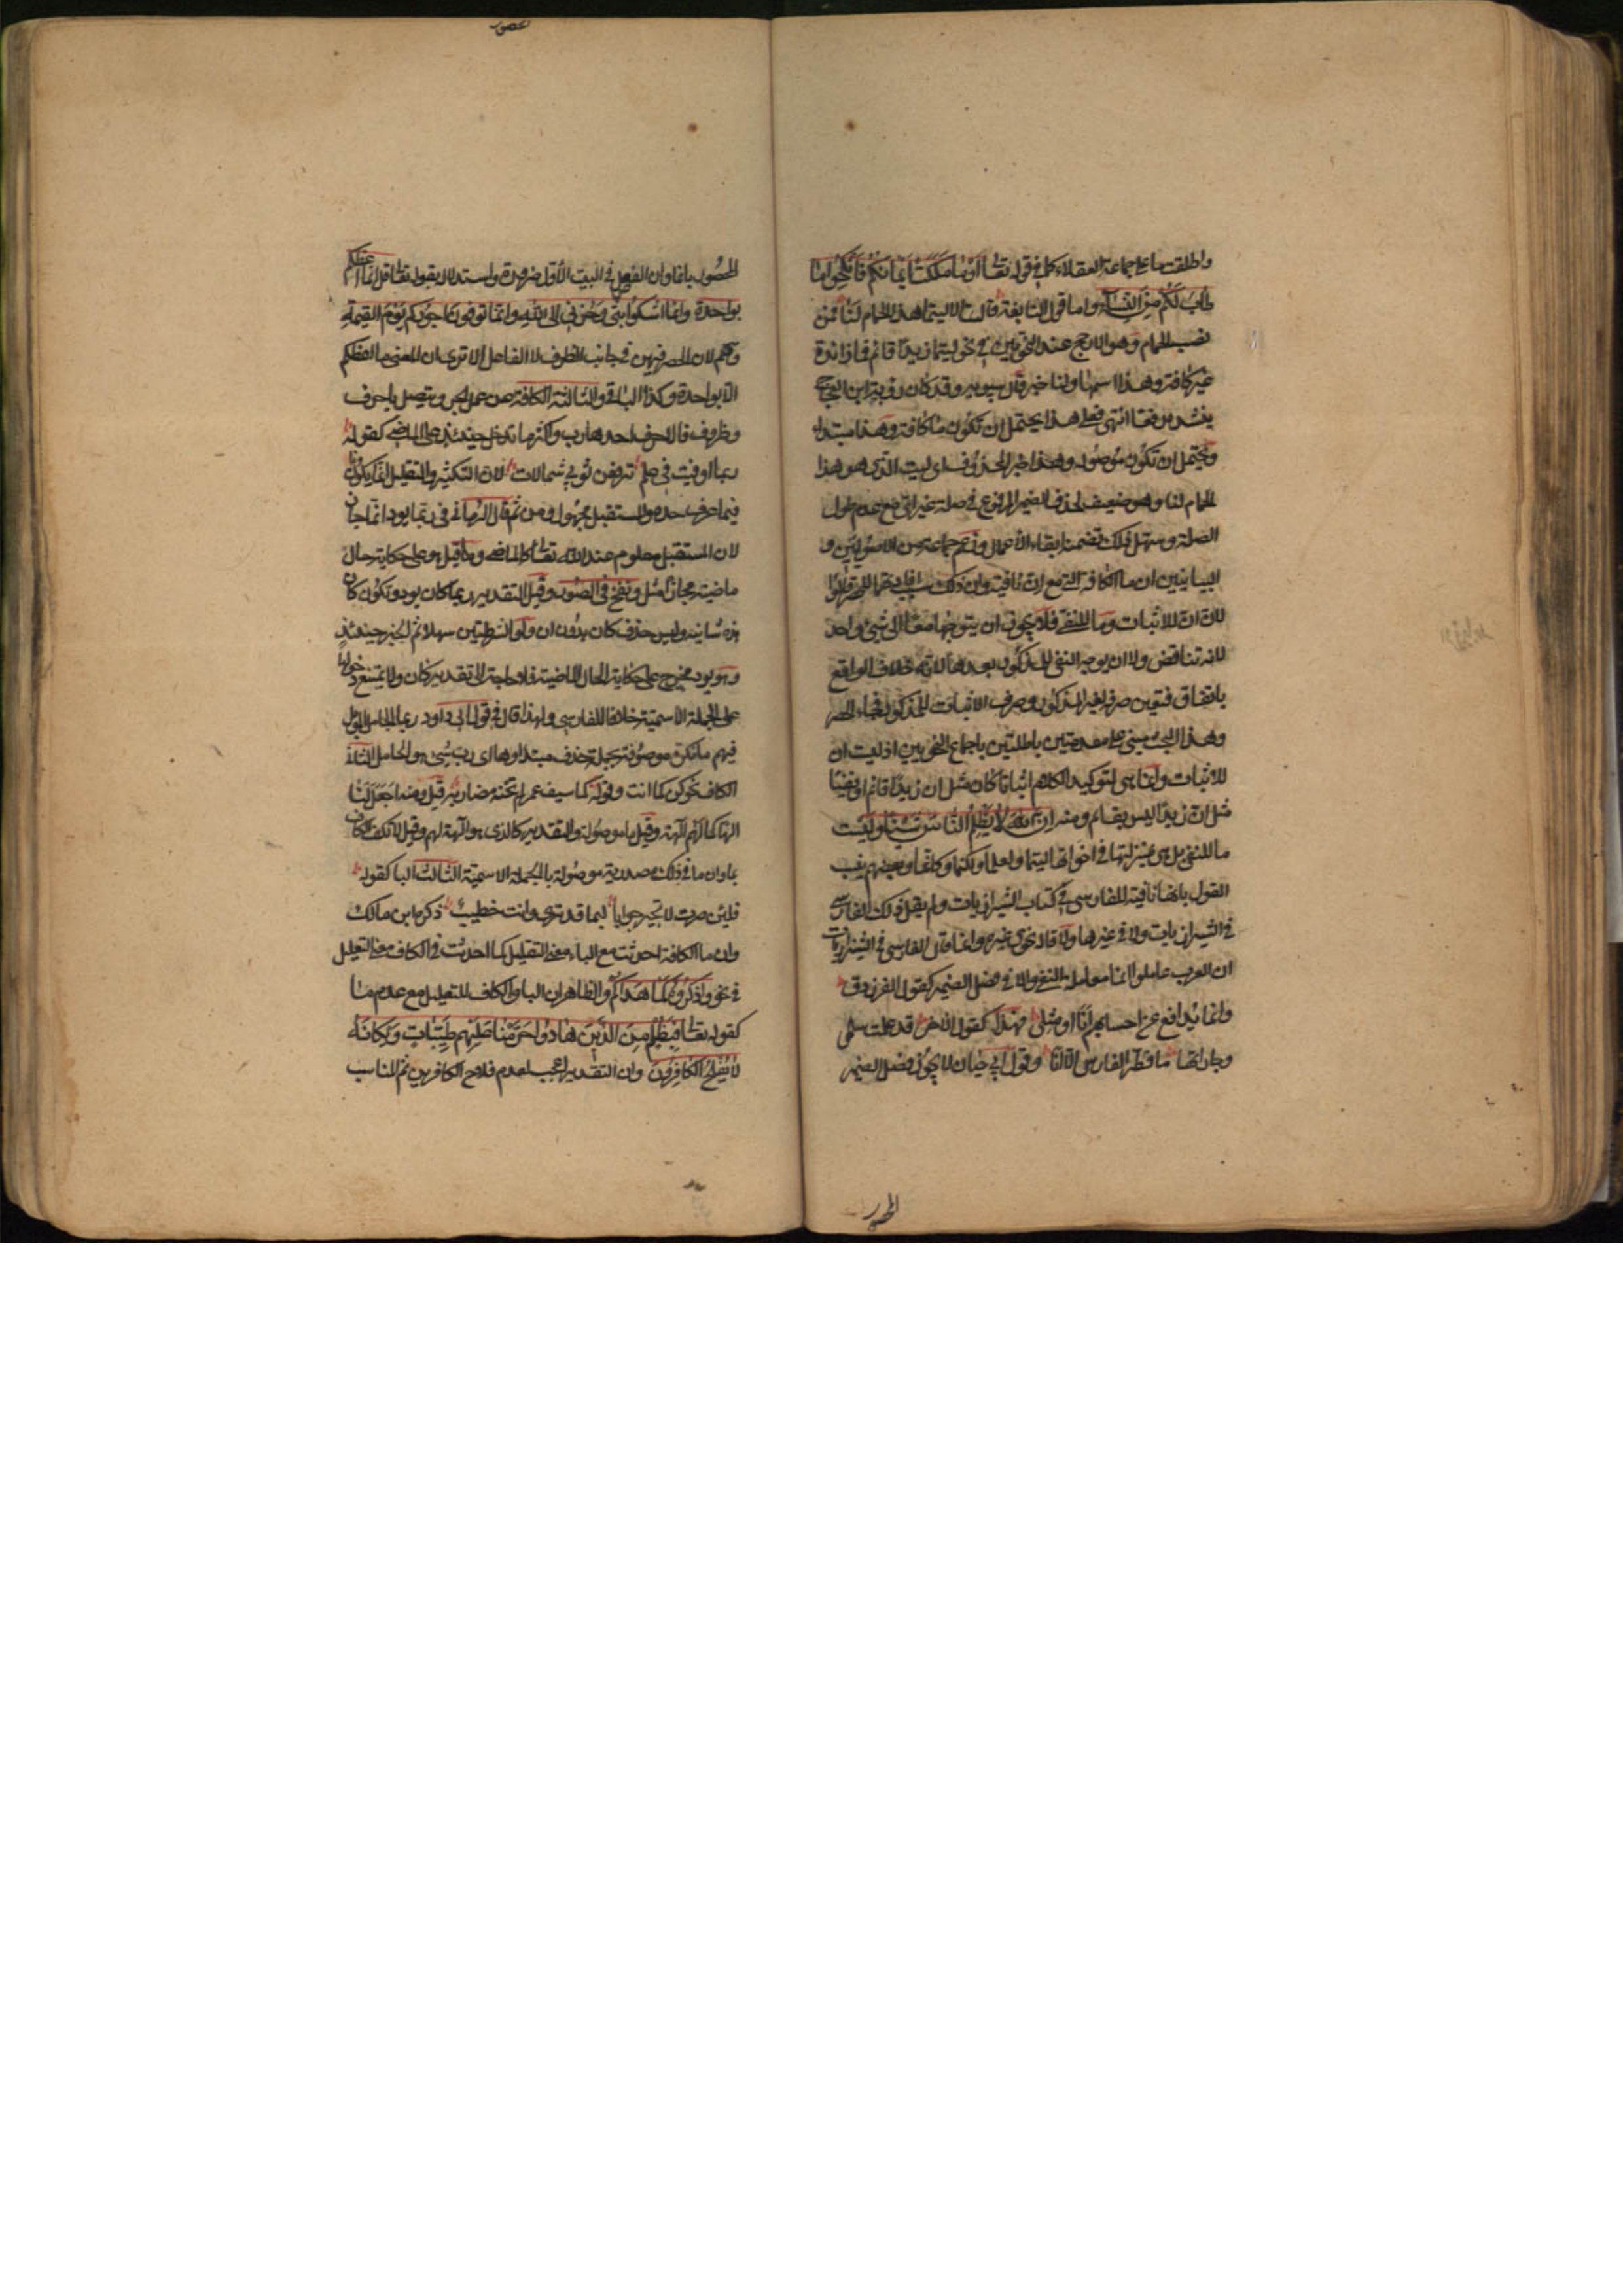 واطلقت ما على جماعة العقلاء كما في قوله تعالى او ما ملكت ايمانكم فانكحوا ما
طاب لكم من النساء واما قول النابغة قالت الا ليتما هذا الحمام لنا فمن
نصب الحمام وهو الارجح عند النحويين في نحو ليتما زيدا قائم فما زائدة
غير كافة وهذا اسمها ولنا خبر قال سيبويه وقد كان رؤبة ابن العجاج
ينشده رفعا انتهى فعلى هذا يحتمل ان تكون ما كافة وهذا مبتداء
ويحتمل ان تكون موصولة وهذا خبر لمحذوف اى ليت الذى هو هذا
الحمام لنا وهو ضعيف لحذف الضمير المرفوع في صلة غير اى مع عدم طول
الصلة وسهل ذلك تضمنه ابقاء الأعمال وزعم جماعة من الاصوليين و
البيانيين ان ما الكافة التى مع ان نافية وان ذلك سبب افادتها للحصر قالوا
لان ان للاثبات وما للنفى فلا يجوز ان يتوجها معا الى شيئ واحد
لانه تناقض ولا ان يوجه النفى للمذكور بعدها لانه خلاف الواقع
باتفاق فتعين صرفه لغير المذكور وصرف الاثبات للمذكور فجاء الحصر
وهذا البحث مبنى على مقدمتين باطلتين باجماع النحويين اذ ليست ان
للاثبات وانما هى لتوكيد الكلام اثباتا كان مثل ان زيدا قائم او نفيا
مثل ان زيدا ليس بقائم ومنه ان الله لا يظلم الناس شيئا وليست
ما للنفى بل هى بمنزلتها في اخواتها ليتما ولعلما ولكنما وكانما وبعضهم ينسب
القول بانها نافية للفارسى في كتاب الشيرازيات ولم يقل ذلك الفارسى
في الشيرازيات ولا في غيرها ولا قاله نحوى غيره وانما قال الفارسى في الشيرازيات
ان العرب عاملوا انما معاملة النفى والا في فصل الضمير كقول الفرزدق
وانما يدافع عن احسابهم انا او مثلى فهذا كقول الاخر قد علمت سلمى
وجاراتها ما قطر الفارس الا انا وقول ابى حيان لا يجوز فصل الضمير
المحصور
المحصور بانما وان الفصل في البيت الأول ضرورة واستدلاله بقوله تعالى قل انما اعظكم
بواحدة وانما اشكوا بثى وحزنى الى الله وانما توفون اجوركم يوم القيمة
وهم لان الحصر فيهن في جانب الظرف لا الفاعل الا ترى ان المعنى ما اعظكم
الا بواحدة وكذا الباقى والثالثة الكافة عن عمل الجر وتتصل باحرف
وظروف فالاحرف احدها رب واكثر ما تدخل حينئذ على الماضى كقوله
ربما اوفيت في علم ترفعن ثوبى شمالات لان التكثير والتقليل انما يكونان
فيما عرف حده والمستقبل مجهول ومن ثم قال الرمانى في ربما يود انما جاز
لان المستقبل معلوم عند الله تعالى كالماضى وقيل هو على حكاية حال
ماضية مجازا مثل ونفخ في الصور وقيل التقدير ربما كان يود وتكون كان
هذه شانية وليس حذف كان بدون ان ولو الشرطيتين سهلا ثم الخبر حينئذ
وهو يود مخرج على حكاية الحال الماضية فلا حاجة الى تقدير كان ولا يمتنع دخولها
على الجملة الاسمية خلافا للفارسى ولهذا قال في قول ابى داود ربما الجامل المؤبل
فيهم ما نكرة موصوفة بجملة حذف مبتداوها اى رب شيئ هو الجامل الثانى
الكاف نحو كن كما انت وقوله كما سيف عمرو لم تخنه مضاربه قيل ومنه اجعل لنا
الها كما لهم آلهة وقيل ما موصولة والتقدير كالذى هو آلهة لهم وقيل لا تكف الكاف
بما وان ما في ذلك مصدرية موصولة بالجملة الاسمية الثالث البا كقوله
فلئن صرت لا تحير جوابا لبما قد ترى وانت خطيب ذكره ابن مالك
وان ما الكافة احدثت مع الباء معنى التقليل كما احدثت في الكاف معنى التعليل
في نحو واذكروه كما هداكم والظاهر ان البا والكاف للتعليل مع عدم ما
كقوله تعالى فبظلم من الذين هادوا حرمنا عليهم طيبات ويكانه
لا يفلح الكافرون وان التقدير اعجب لعدم فلاح الكافرين ثم المناسب